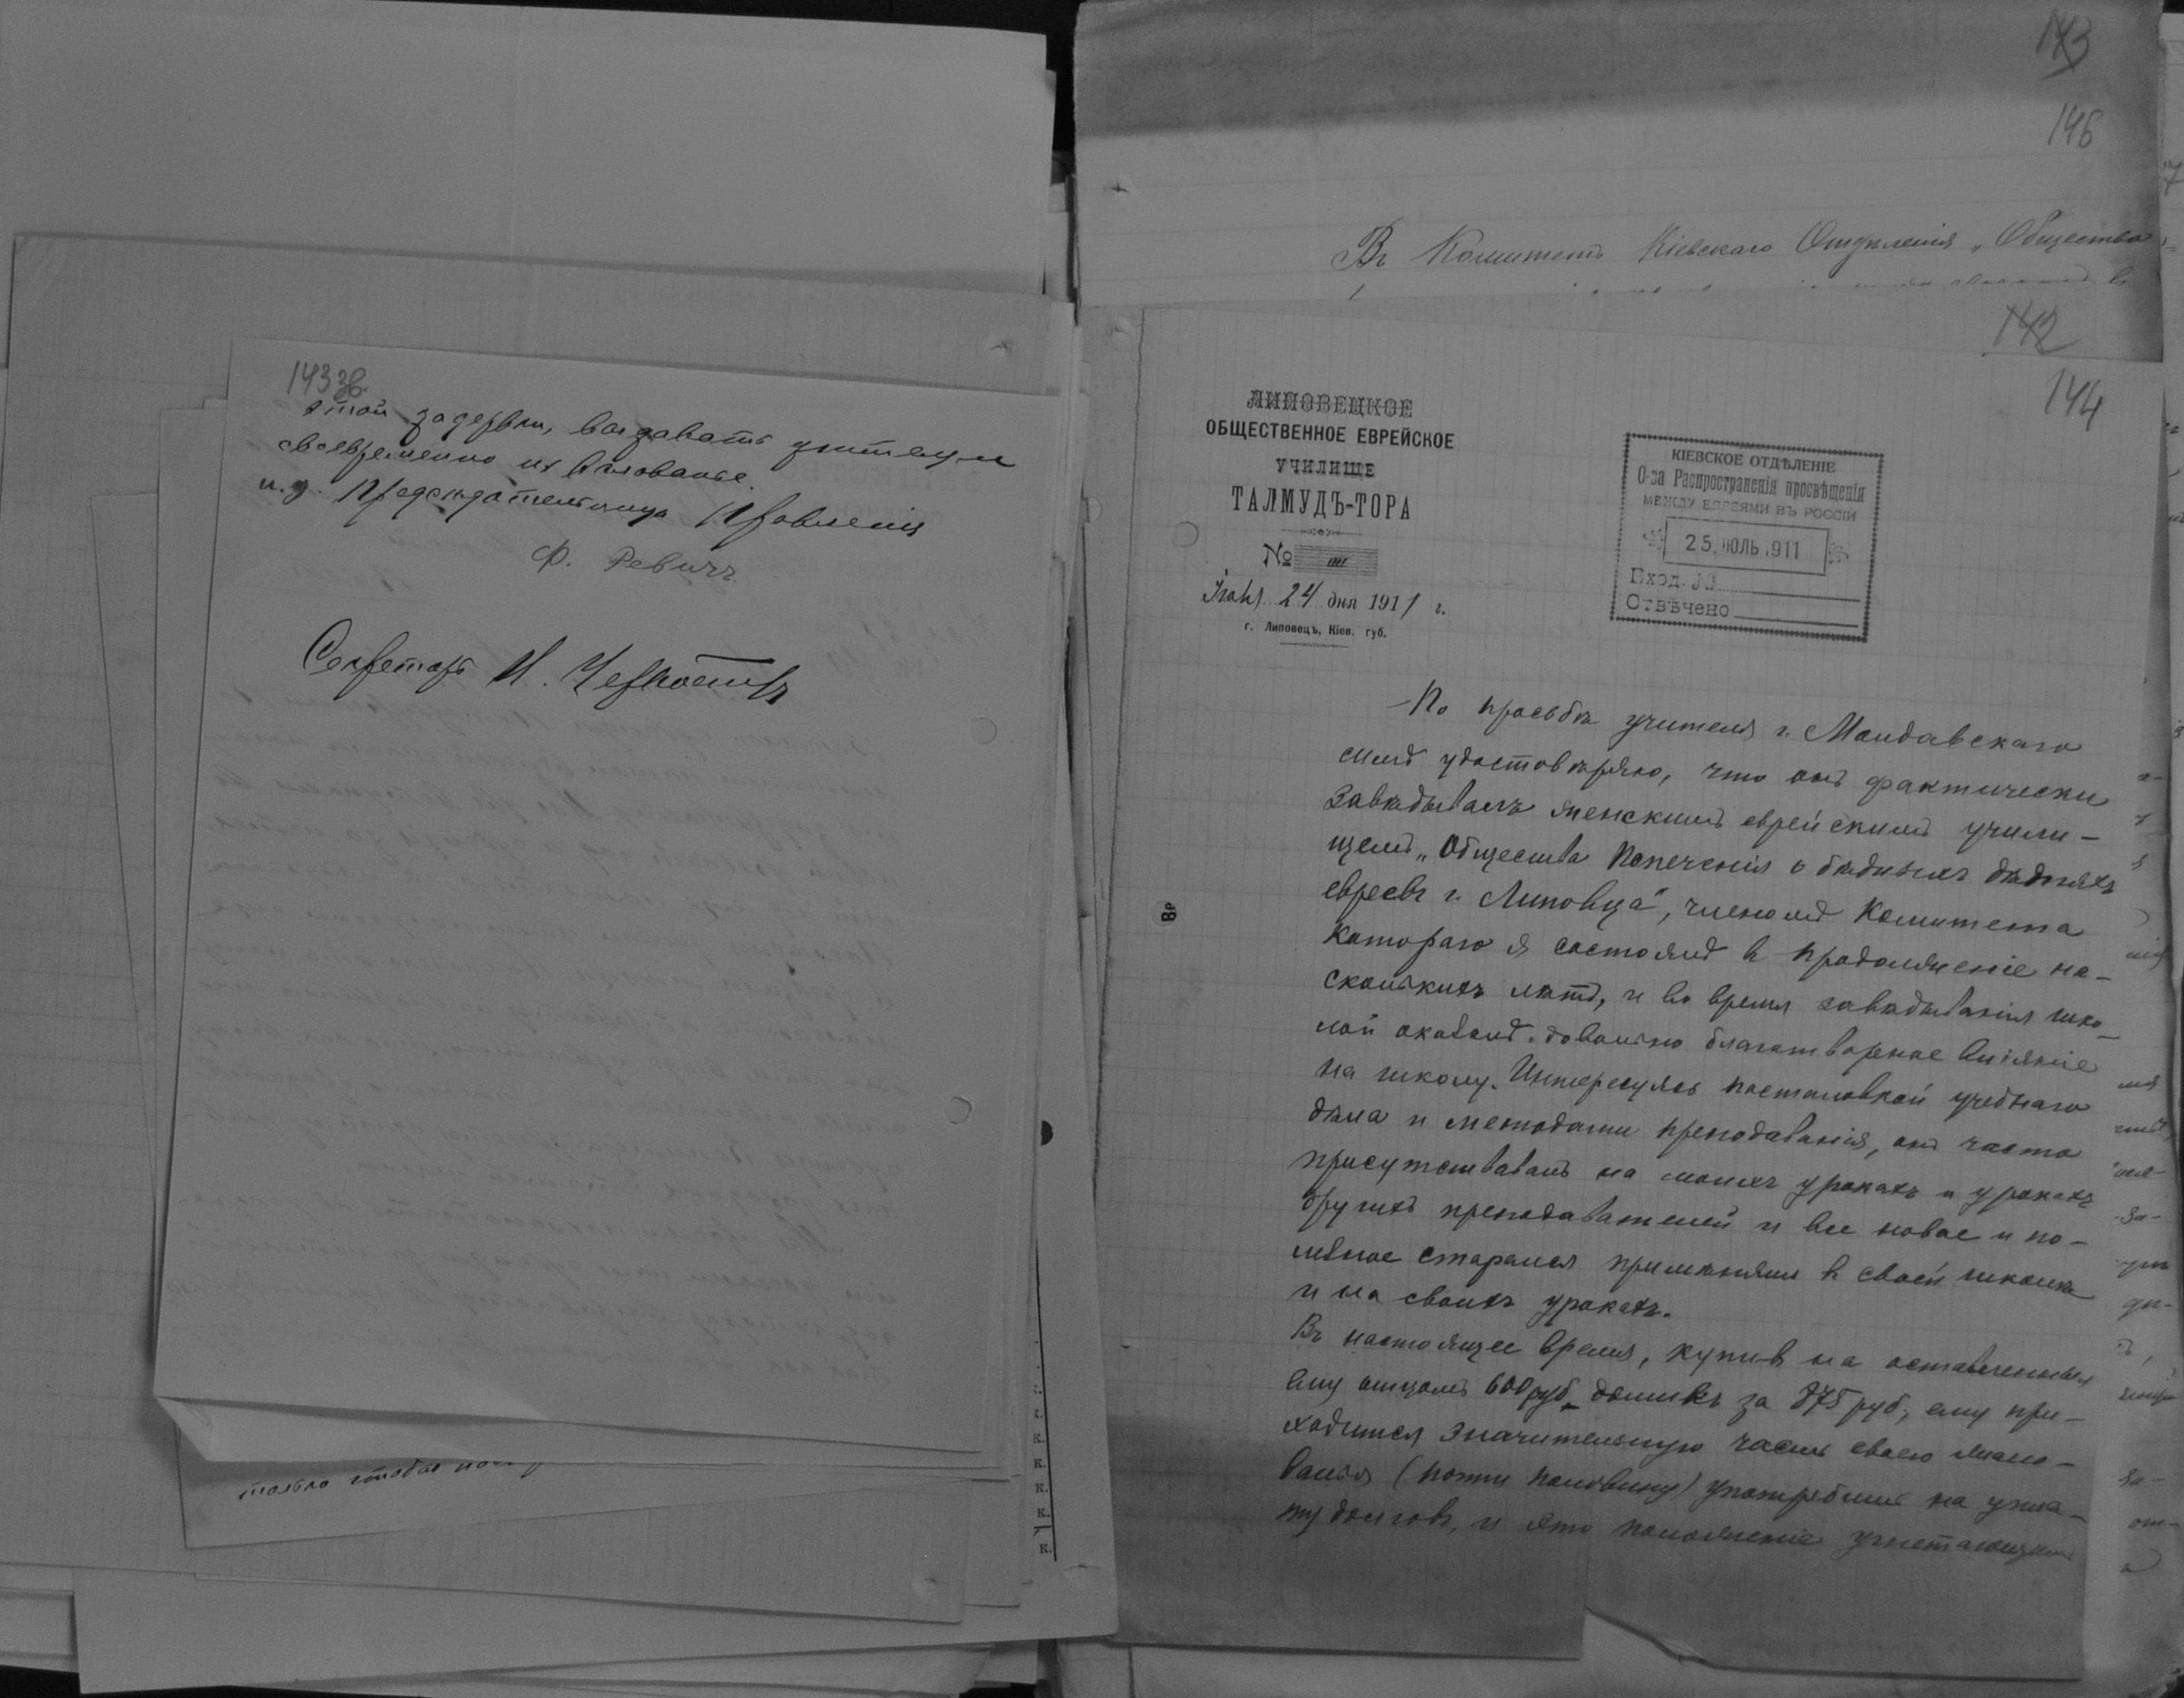 143 зв.
этой задержки, выдавать учителям
своевременно их жалованье.
и. д. Председательницы Правления
Ф. Ревичъ
Секретарь И.
только чтобы
143
146
Въ Комитетъ Кіевскаго Отдѣленія „Общества
142
144
ЛИПОВЕЦКОЕ
ОБЩЕСТВЕННОЕ ЕВРЕЙСКОЕ
УЧИЛИЩЕ
ТАЛМУДЪ-ТОРА
№
24 дня 1911 г.
г. Липовецъ, Кіев. губ.
КІЕВСКОЕ ОТДѢЛЕНІЕ
О-ва Распространенія просвѣщенія
МЕЖДУ ЕВРЕЯМИ ВЪ РОССІИ
25. ІЮЛЬ 1911
Вход. №
Отвѣчено
По просьбѣ учителя г. Молдавскаго
симъ удостовѣряю, что онъ фактически
завѣдывалъ женскимъ еврейскимъ учили-
щемъ „Общества Попеченія о бѣдныхъ дѣтяхъ
евреевъ г. Липовца", членомъ Комитета
котораго я состоялъ въ продолженіе нѣ-
сколькихъ лѣтъ, и во время завѣдыванія шко-
лой оказалъ довольно благотворное вліяніе
на школу. Интересуясь постановкой учебнаго
дѣла и методами преподаванія, онъ часто
присутствовалъ на моихъ урокахъ и урокахъ
другихъ преподавателей и все новое и по-
лезное старался примѣнять въ своей школѣ
и на своихъ урокахъ.
Въ настоящее время, купивъ на оставленные
ему отцомъ 600 руб. домикъ за 875 руб., ему при-
ходится значительную часть своего жало-
ванья (почти половину) употребить на упла-
ту долговъ, и это положеніе